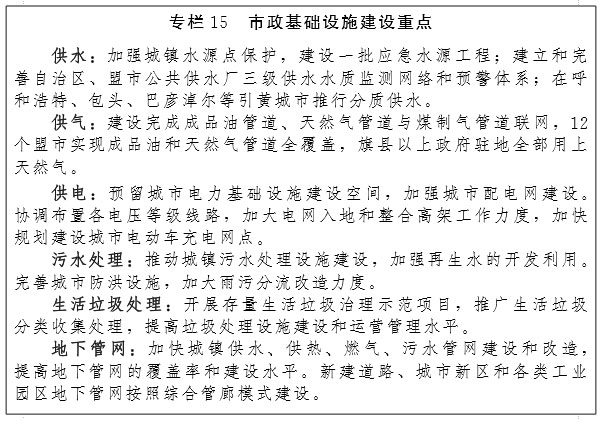 专栏 15  市政基础设施建设重点
供水：加强城镇水源点保护，建设一批应急水源工程；建立和完
善自治区、盟市公共供水厂三级供水水质监测网络和预警体系；在呼
和浩特、包头、巴彦淖尔等引黄城市推行分质供水。
供气：建设完成成品油管道、天然气管道与煤制气管道联网，12
个盟市实现成品油和天然气管道全覆盖，旗县以上政府驻地全部用上
天然气。
供电：预留城市电力基础设施建设空间，加强城市配电网建设。
协调布置各电压等级线路，加大电网入地和整合高架工作力度，加快
规划建设城市电动车充电网点。
污水处理：推动城镇污水处理设施建设，加强再生水的开发利用。
完善城市防洪设施，加大雨污分流改造力度。
生活垃圾处理：开展存量生活垃圾治理示范项目，推广生活垃圾
分类收集处理，提高垃圾处理设施建设和运营管理水平。
地下管网：加快城镇供水、供热、燃气、污水管网建设和改造，
提高地下管网的覆盖率和建设水平。新建道路、城市新区和各类工业
园区地下管网按照综合管廊模式建设。